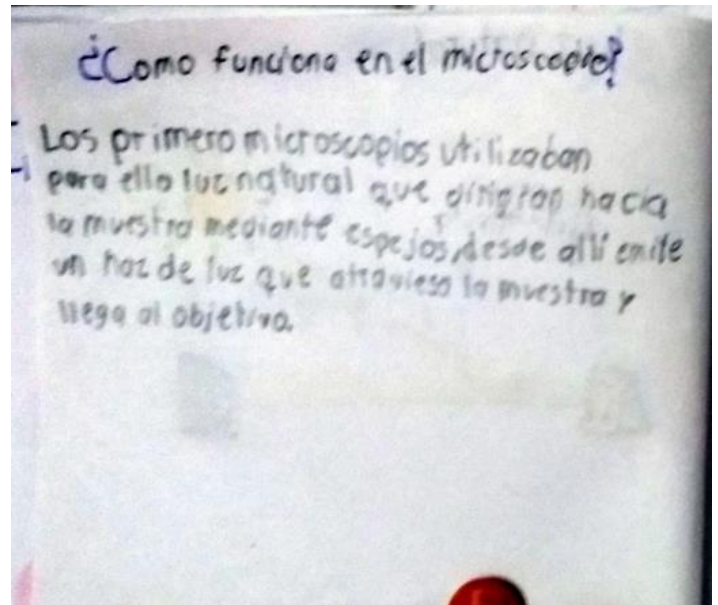 ¿Como funciona en el microscopio?
Los primero microscopios utilizaban
para ello luz natural que dirigían hacia
la muestra mediante espejos, desde allí emite
un haz de luz que atraviesa la muestra y
llega al objetivo.